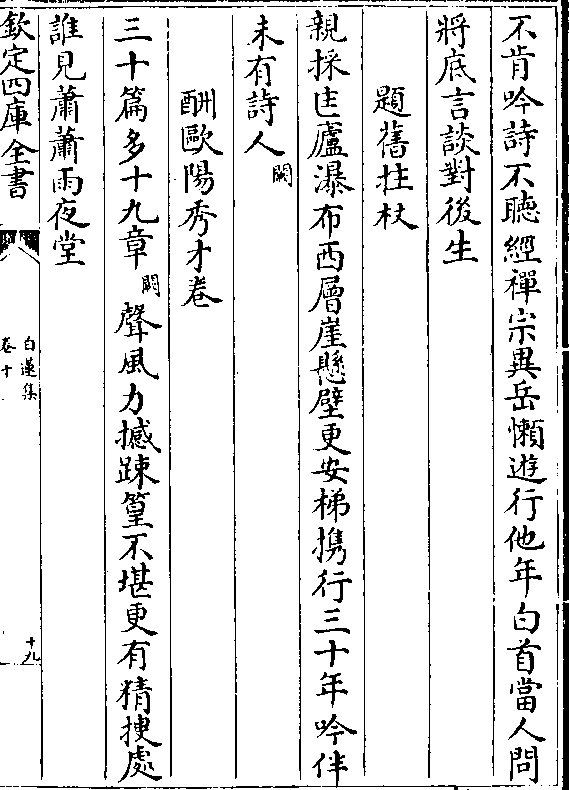 不肯吟詩不聽經禪宗異岳懶遊行他年白首當人問
將底言談對後生
題舊拄杖
親採匡廬瀑布西層崖懸壁更安梯携行三十年吟伴
未有詩人闕
酬歐陽秀才卷
三十篇多十九章闕聲風力撼踈篁不堪更有精搜處
誰見蕭蕭雨夜堂
欽定四庫全書
白蓮集
卷十
十九